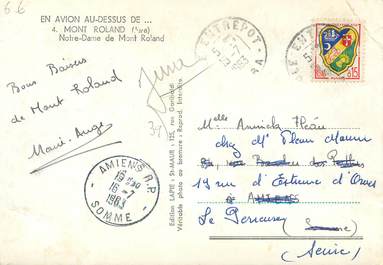 6 €
EN AVION AU-DESSUS DE ...
4. MONT ROLAND (Jura)
Notre-Dame de Mont Roland
Bons Baisers
de Mont Roland
Marie-Ange
Jura
39
AMIENS R.P.
19 H30
16-7
1963
SOMME
Edition LAPIE, St-MAUR - 125, rue Garibaldi
Véritable photo au bromure - Reprod. Interdite
ENTREPOT
-7
1963
0,15
Melle Annick
chez Mr
13 rue d'Estienne d'Orves
AMIENS
Le Perreux (Somme)
(Seine)